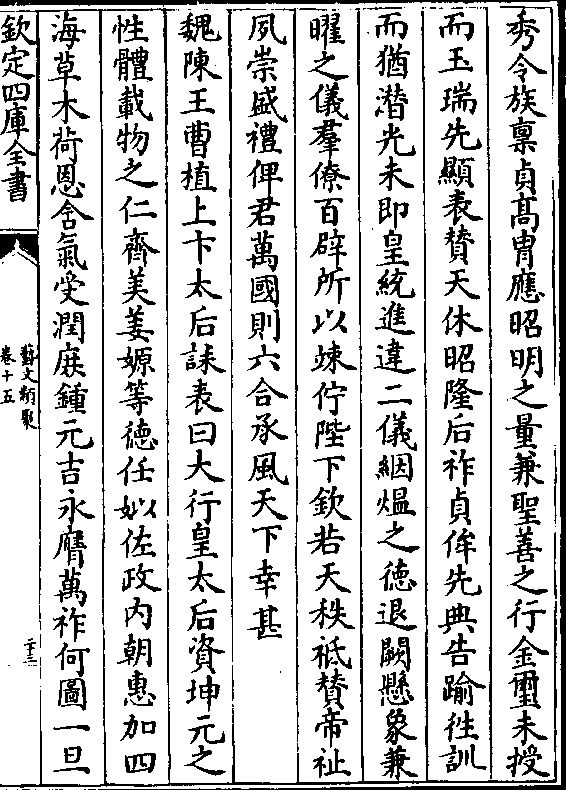 秀令族禀貞髙胄應昭明之量兼聖善之行金璽未授
而玉瑞先顯表賛天休昭隆后祚貞侔先典告踰徃訓
而猶潛光未即皇統進違二儀絪煴之徳退闕懸象兼
曜之儀羣僚百辟所以竦佇陛下欽若天秩祗賛帝祉
夙崇盛禮俾君萬國則六合承風天下幸甚
魏陳王曹植上卞太后誄表曰大行皇太后資坤元之
性體載物之仁齊美姜嫄等徳任姒佐政内朝惠加四
海草木荷恩含氣受潤庻鍾元吉永膺萬祚何圖一旦
欽定四庫全書
藝文類聚
卷十五
二十三